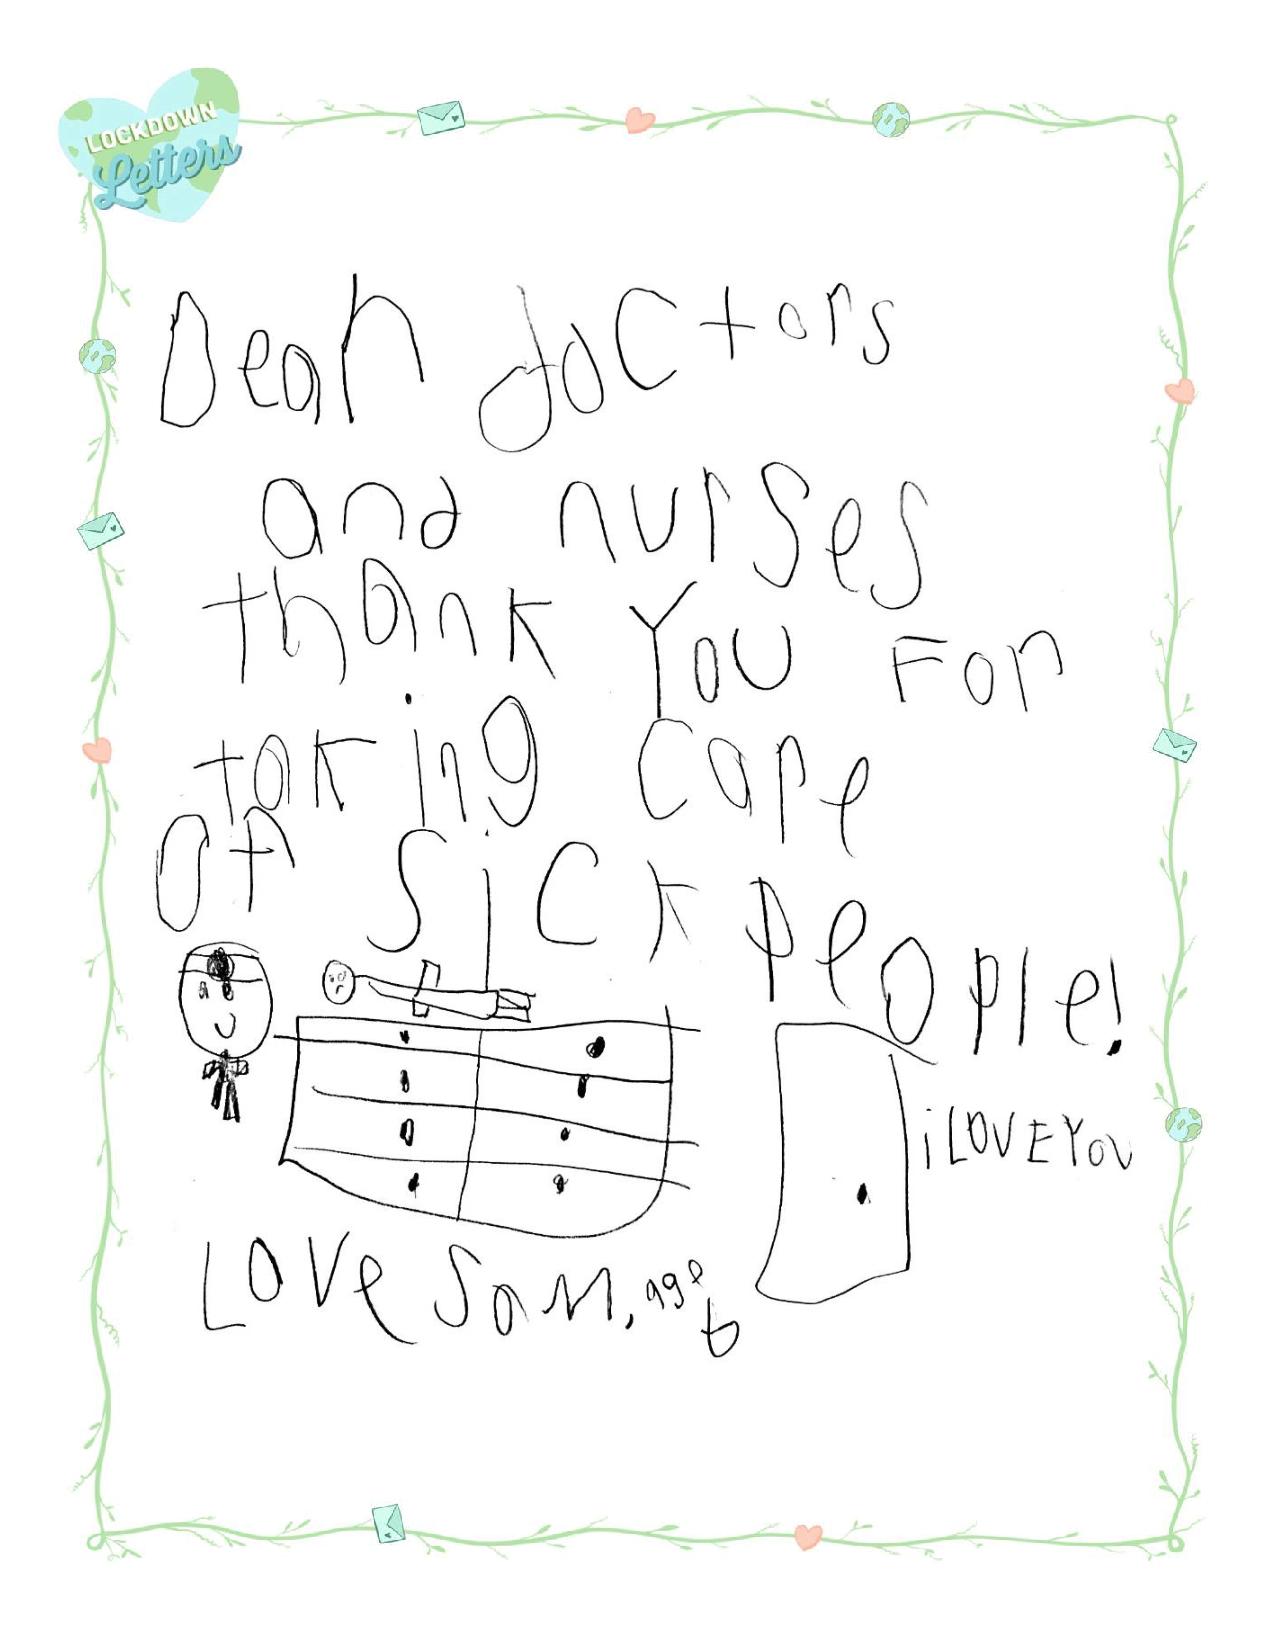 LOCKDOWN
Letters
Dear doctors
and nurses
thank You For
taking care
of Sick people!
i LOVE YOU
LOVE SaM, age 6